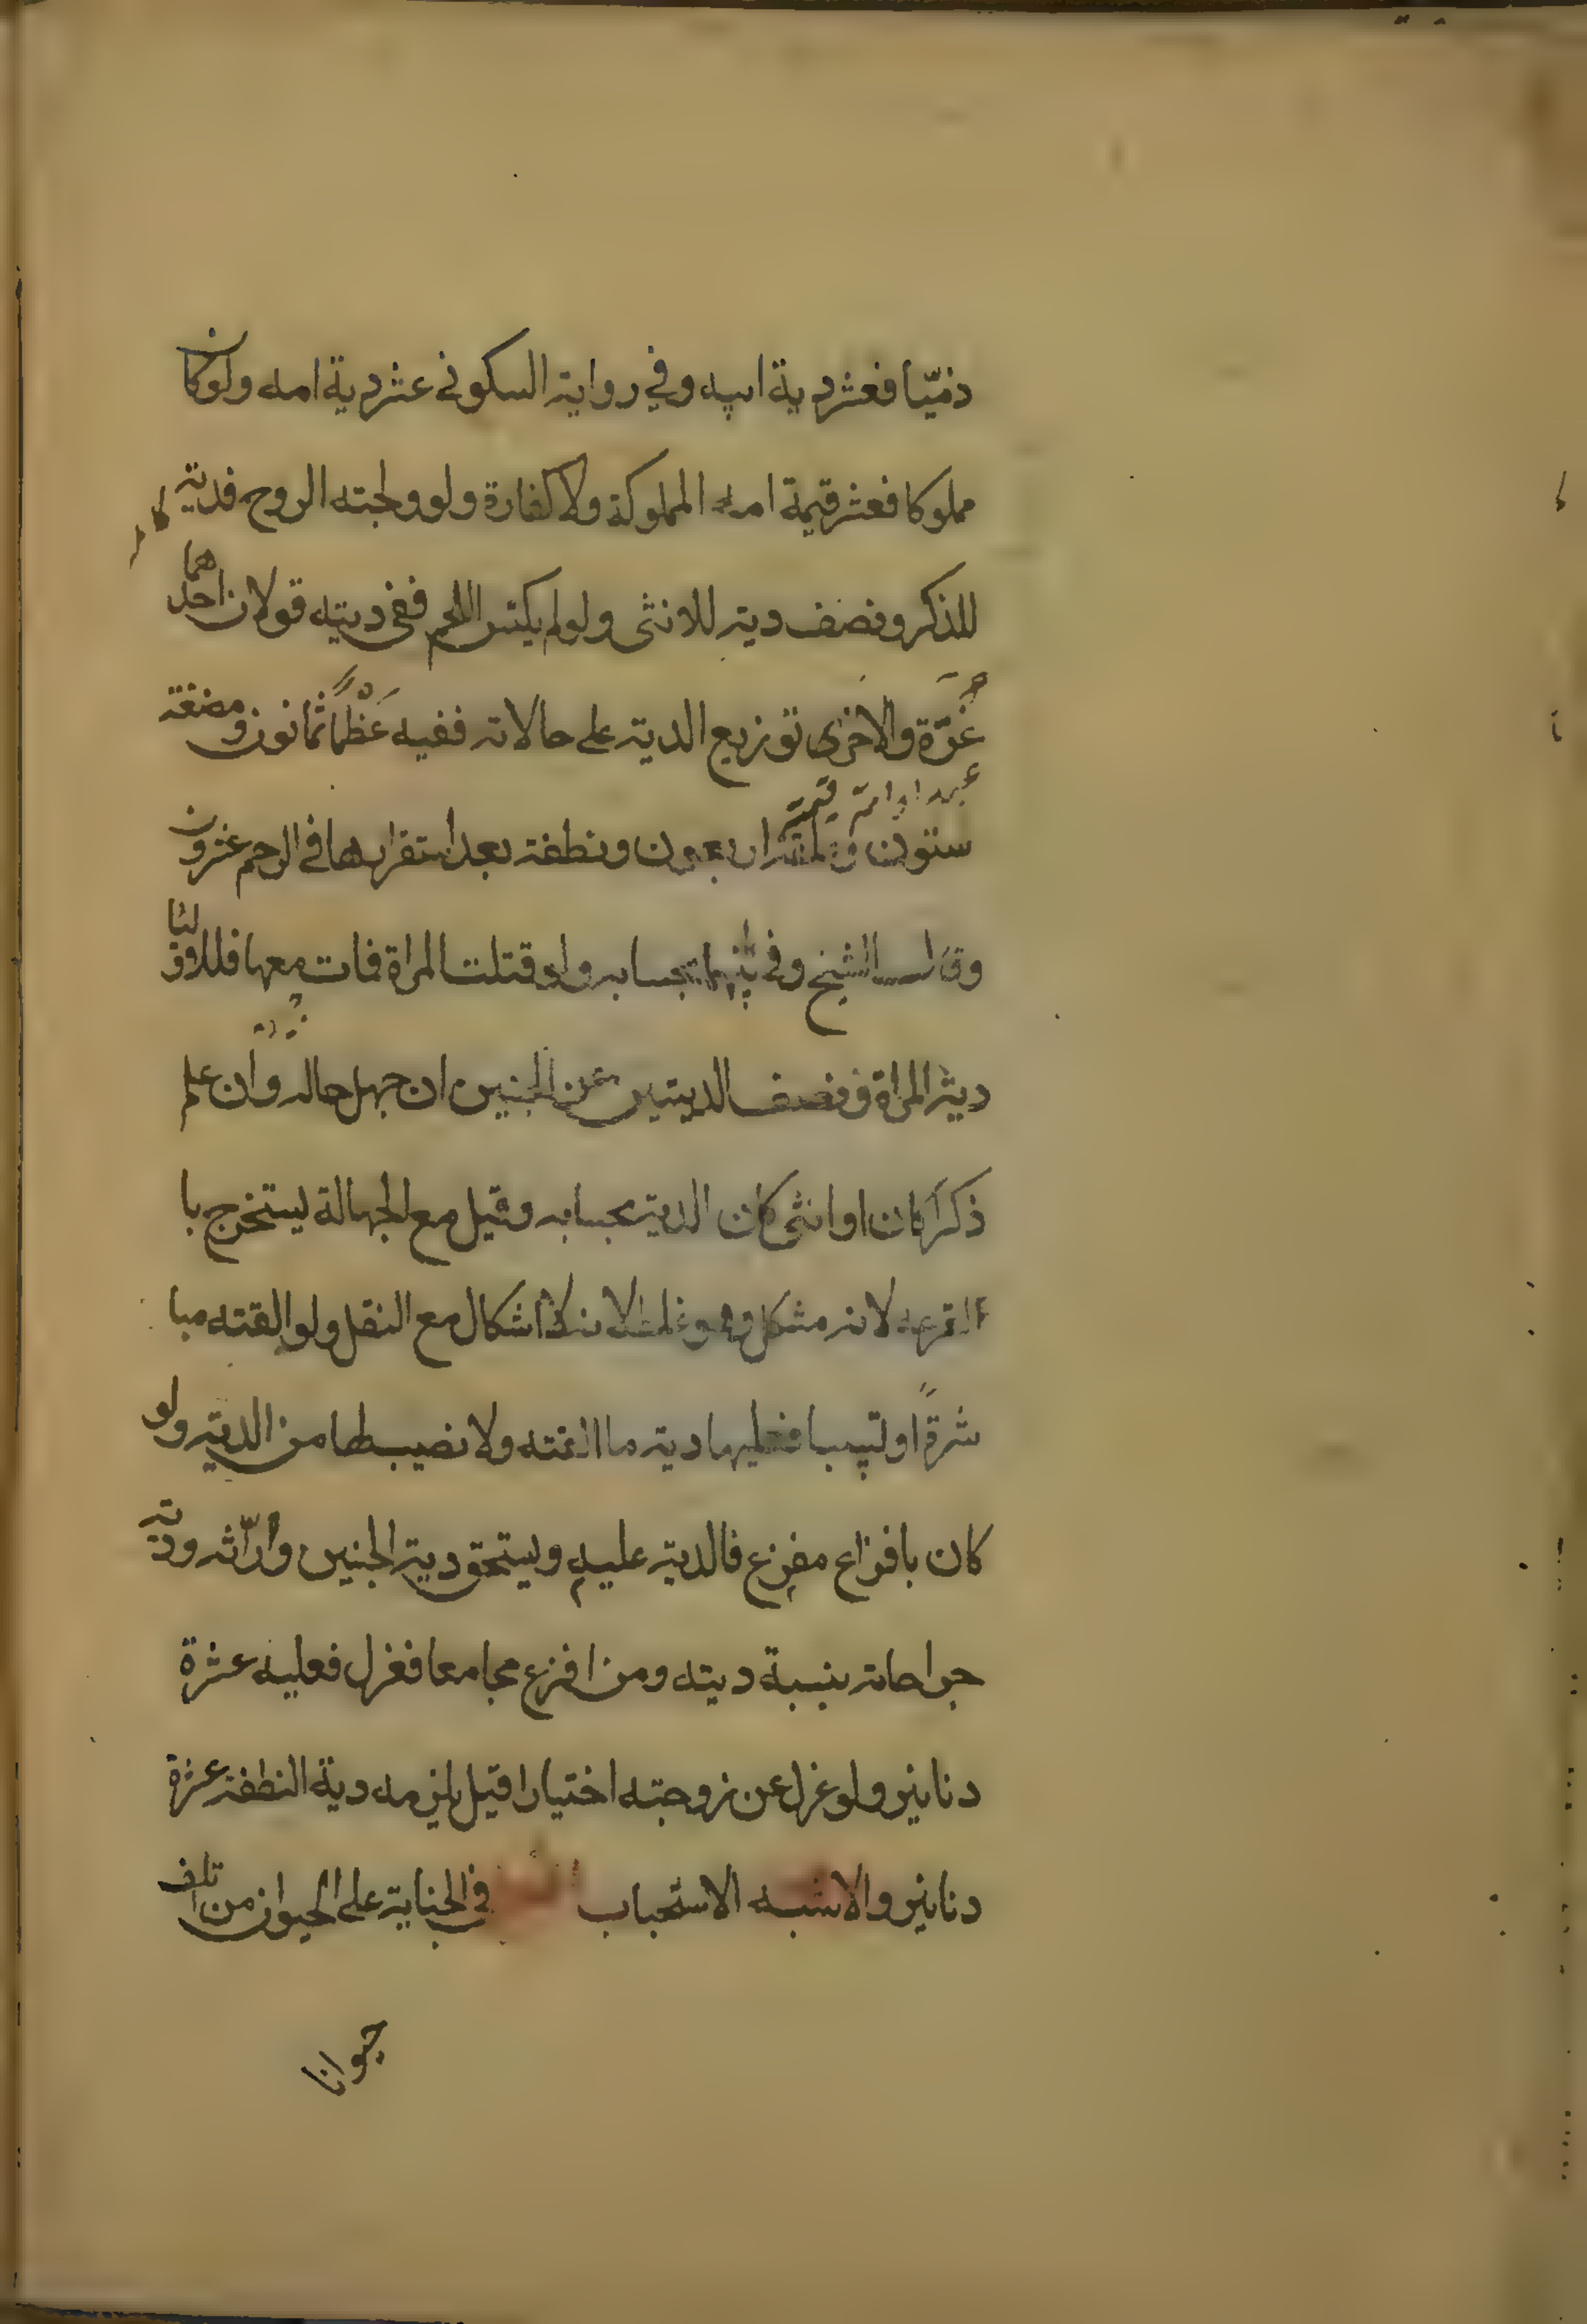 ذميّا فعشر دية ابيه وفي رواية السكوني عشر دية امه ولو كان
مملوكا فعشر قيمة امه المملوكة ولا كفارة ولو ولجته الروح فدية كاملة
للذكر ونصف دية للانثى ولو لم يكتس اللحم ففي ديته قولان احدهما
غُرّة والاخرى توزيع الدية على حالاته ففيه عَظْماً ثمانون ومضغة
عبد او امة قيمة
ستون وعلقة اربعون ونطفة بعد استقرارها في الرحم عشرون
وقال الشيخ وفيما بينهما بحسابه ولو قتلت المراة فمات معها فللاوليا
دية المراة ونصف الديتين عن الجنين ان جهل حاله وان علم
ذكرًا كان او انثى كان الدية بحسابه وقيل مع الجهالة يستخرج با
القرعه لانه مشكل وهو غلط لانه لا اشكال مع النقل ولو القته مبا
شرةً او تسبيبا فعليها دية ما القته ولا نصيب لها من الدية ولو
كان بافزاع مفزع فالدية عليه ويستحق دية الجنين ورّاثه ودية
جراحاته بنسبة ديته ومن افزع مجامعا فعزل فعليه عشرة
دنانير ولو عزل عن زوجته اختيارا قيل يلزمه دية النطفة عشرة
دنانير والاشبه الاستحباب في الجناية على الحيوان من اتلف
حيوانا